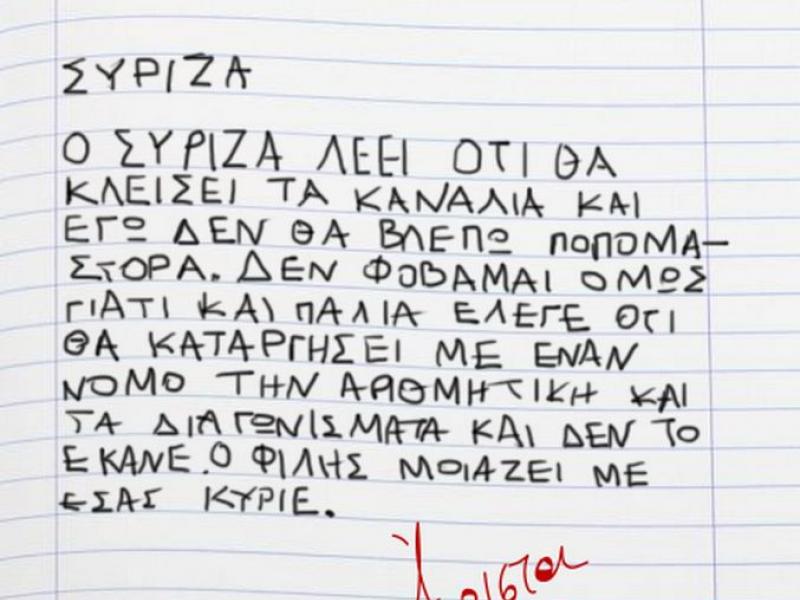 ΣΥΡΙΖΑ
Ο ΣΥΡΙΖΑ ΛΕΕΙ ΟΤΙ ΘΑ
ΚΛΕΙΣΕΙ ΤΑ ΚΑΝΑΛΙΑ ΚΑΙ
ΕΓΩ ΔΕΝ ΘΑ ΒΛΕΠΩ ΠΟΠΟΜΑ-
ΣΤΟΡΑ. ΔΕΝ ΦΟΒΑΜΑΙ ΟΜΩΣ
ΓΙΑΤΙ ΚΑΙ ΠΑΛΙΑ ΕΛΕΓΕ ΟΤΙ
ΘΑ ΚΑΤΑΡΓΗΣΕΙ ΜΕ ΕΝΑΝ
ΝΟΜΟ ΤΗΝ ΑΡΘΜΗΤΙΚΗ ΚΑΙ
ΤΑ ΔΙΑΓΩΝΙΣΜΑΤΑ ΚΑΙ ΔΕΝ ΤΟ
ΕΚΑΝΕ. Ο ΦΙΛΗΣ ΜΟΙΑΖΕΙ ΜΕ
ΕΣΑΣ ΚΥΡΙΕ.
Άριστα